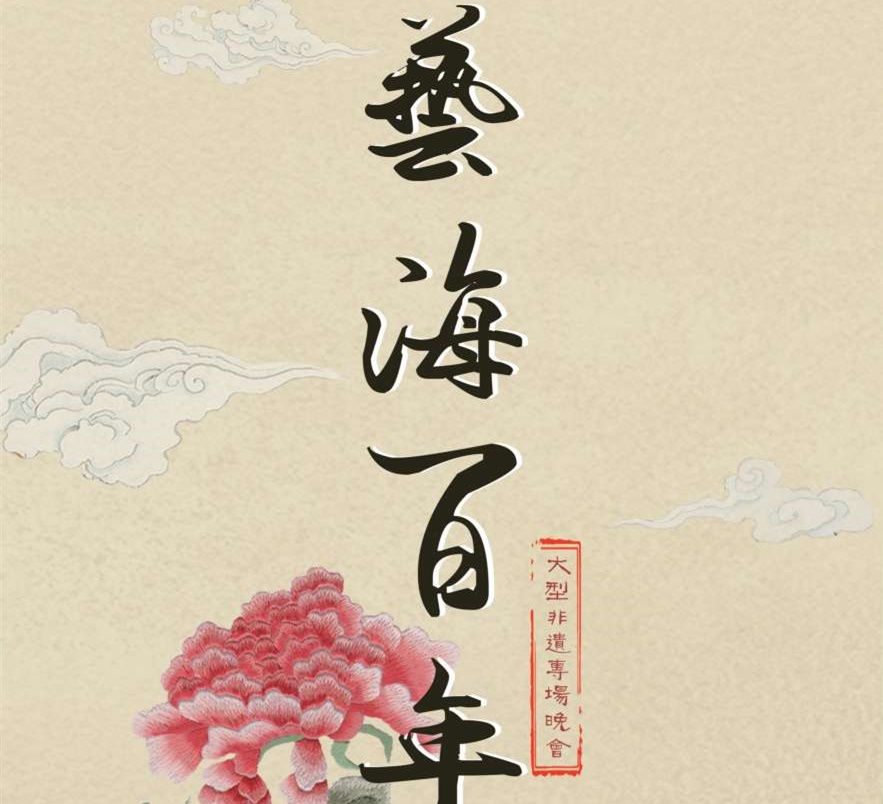 藝海百年
大型非遺專場晚會